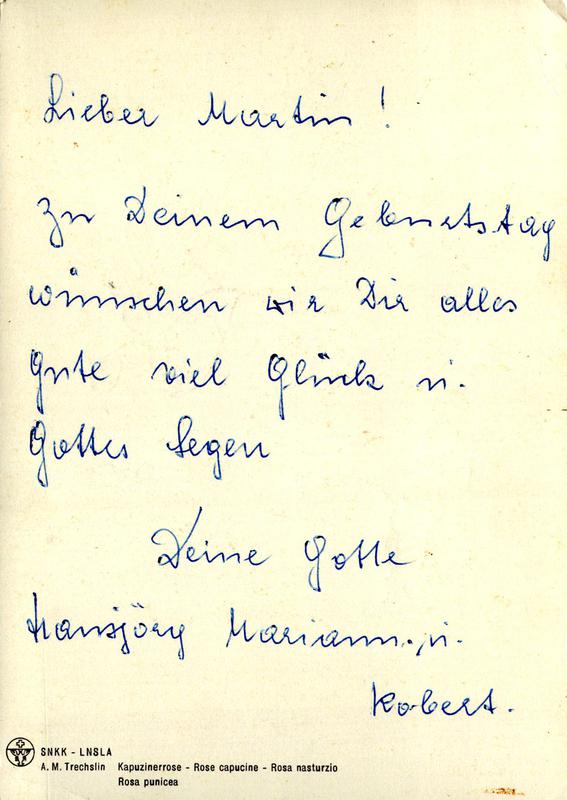 Lieber Martin!
Zu Deinem Geburtstag
wünschen wir Dir alles
Gute viel Glück u.
Gottes Segen
Deine Gotte
Hansjörg Mariann. u.
Robert.
SNKK - LNSLA
A. M. Trechslin Kapuzinerrose - Rose capucine - Rosa nasturzio
Rosa punicea